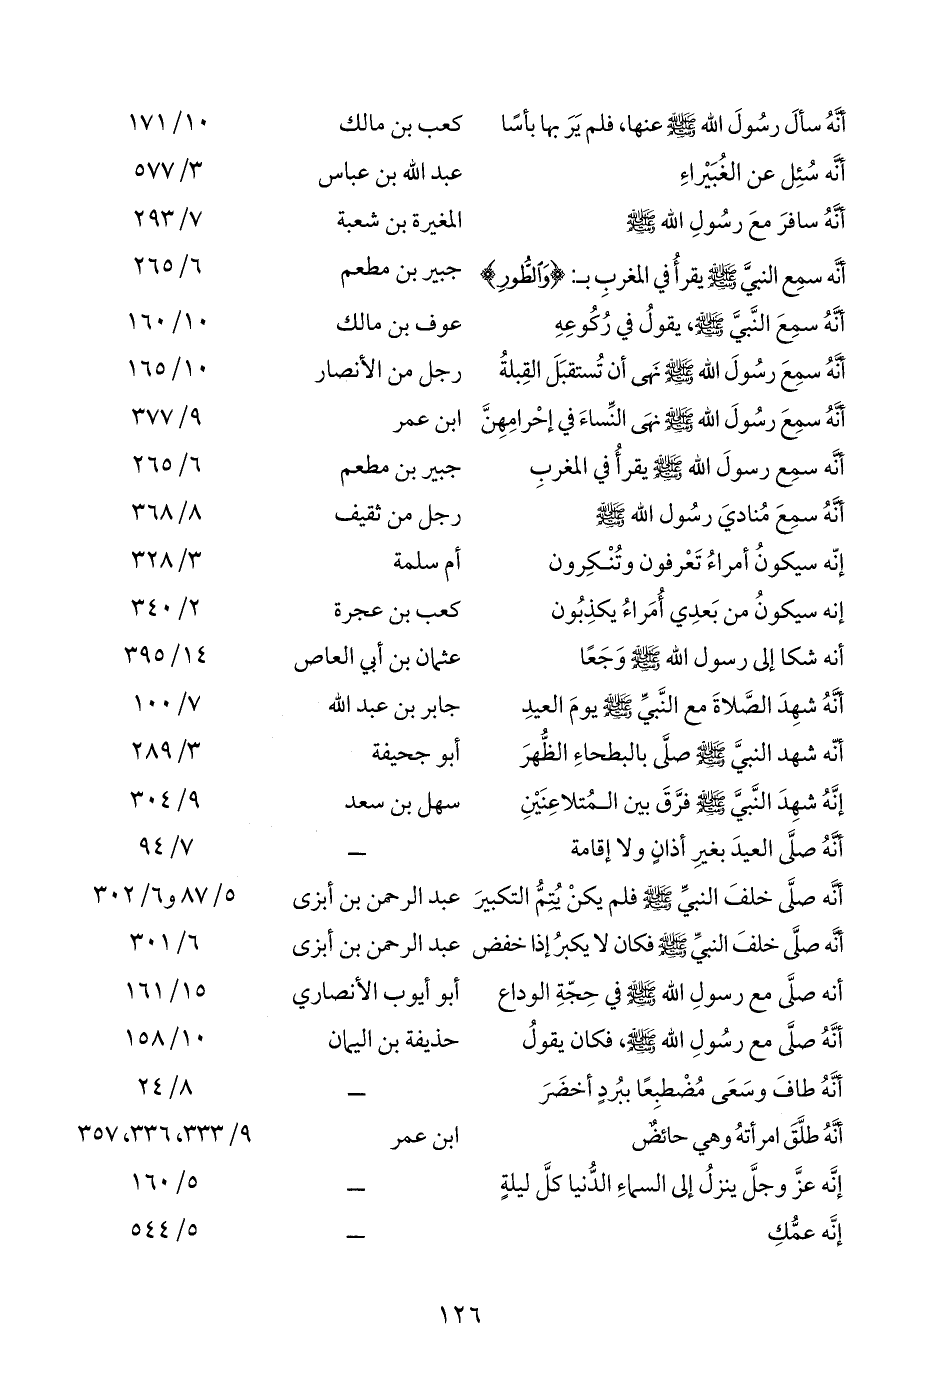 أنَّهُ سألَ رسُولَ الله ﷺ عنها، فلم يَرَ بها بأسًا كعب بن مالك ١٠/ ١٧١
أنَّه سُئِل عن الغُبَيْراءِ عبد الله بن عباس ٣/ ٥٧٧
أنَّهُ سافرَ معَ رسُولِ الله ﷺ المغيرة بن شعبة ٧/ ٢٩٣
أنَّه سمِع النبيَّ ﷺ يقرأُ في المغربِ بـ: ﴿وَالطُّورِ﴾ جبير بن مطعم ٦/ ٢٦٥
أنَّهُ سمِعَ النَّبيَّ ﷺ، يقولُ في رُكُوعِهِ عوف بن مالك ١٠/ ١٦٠
أنَّهُ سمِعَ رسُولَ الله ﷺ نَهى أن تُستقبَلَ القِبلةُ رجل من الأنصار ١٠/ ١٦٥
أنَّهُ سمِعَ رسُولَ الله ﷺ نهَى النِّساءَ في إحْرامِهِنَّ ابن عمر ٩/ ٣٧٧
أنَّه سمِع رسولَ الله ﷺ يقرأُ في المغربِ جبير بن مطعم ٦/ ٢٦٥
أنَّهُ سمِعَ مُناديَ رسُول الله ﷺ رجل من ثقيف ٨/ ٣٦٨
إنّه سيكونُ أمراءُ تَعْرفون وتُنْكِرون أم سلمة ٣/ ٣٢٨
إنه سيكونُ من بَعدِي أُمَراءُ يكذِبُون كعب بن عجرة ٢/ ٣٤٠
أنه شكا إلى رسول الله ﷺ وَجَعًا عثمان بن أبي العاص ١٤/ ٣٩٥
أنَّهُ شهِدَ الصَّلاةَ مع النَّبيِّ ﷺ يومَ العيدِ جابر بن عبد الله ٧/ ١٠٠
أنّه شهد النبيَّ ﷺ صلَّى بالبطحاءِ الظُّهرَ أبو جحيفة ٣/ ٢٨٩
إنَّهُ شهِدَ النَّبيَّ ﷺ فرَّقَ بين المُتلاعِنَيْنِ سهل بن سعد ٩/ ٣٠٤
أنَّهُ صلَّى العيدَ بغيرِ أذانٍ ولا إقامة – ٧/ ٩٤
أنَّه صلَّى خلفَ النبيِّ ﷺ فلم يكنْ يُتِمُّ التكبيرَ عبد الرحمن بن أبزى ٥/ ٨٧ و٦/ ٣٠٢
أنَّه صلَّى خلفَ النبيِّ ﷺ فكان لا يكبرُ إذا خفض عبد الرحمن بن أبزى ٦/ ٣٠١
أنه صلَّى مع رسولِ الله ﷺ في حِجّةِ الوداع أبو أيوب الأنصاري ١٥/ ١٦١
أنَّهُ صلَّى مع رسُولِ الله ﷺ، فكان يقولُ حذيفة بن اليمان ١٠/ ١٥٨
أنَّهُ طافَ وسَعَى مُضْطبِعًا ببُردٍ أخضَرَ – ٨/ ٢٤
أنَّهُ طلَّقَ امرأتهُ وهي حائضٌ ابن عمر ٩/ ٣٣٣، ٣٣٦، ٣٥٧
إنَّه عزَّ وجلَّ ينزلُ إلى السماءِ الدُّنيا كلَّ ليلةٍ – ٥/ ١٦٠
إنَّه عمُّكِ – ٥/ ٥٤٤
١٢٦